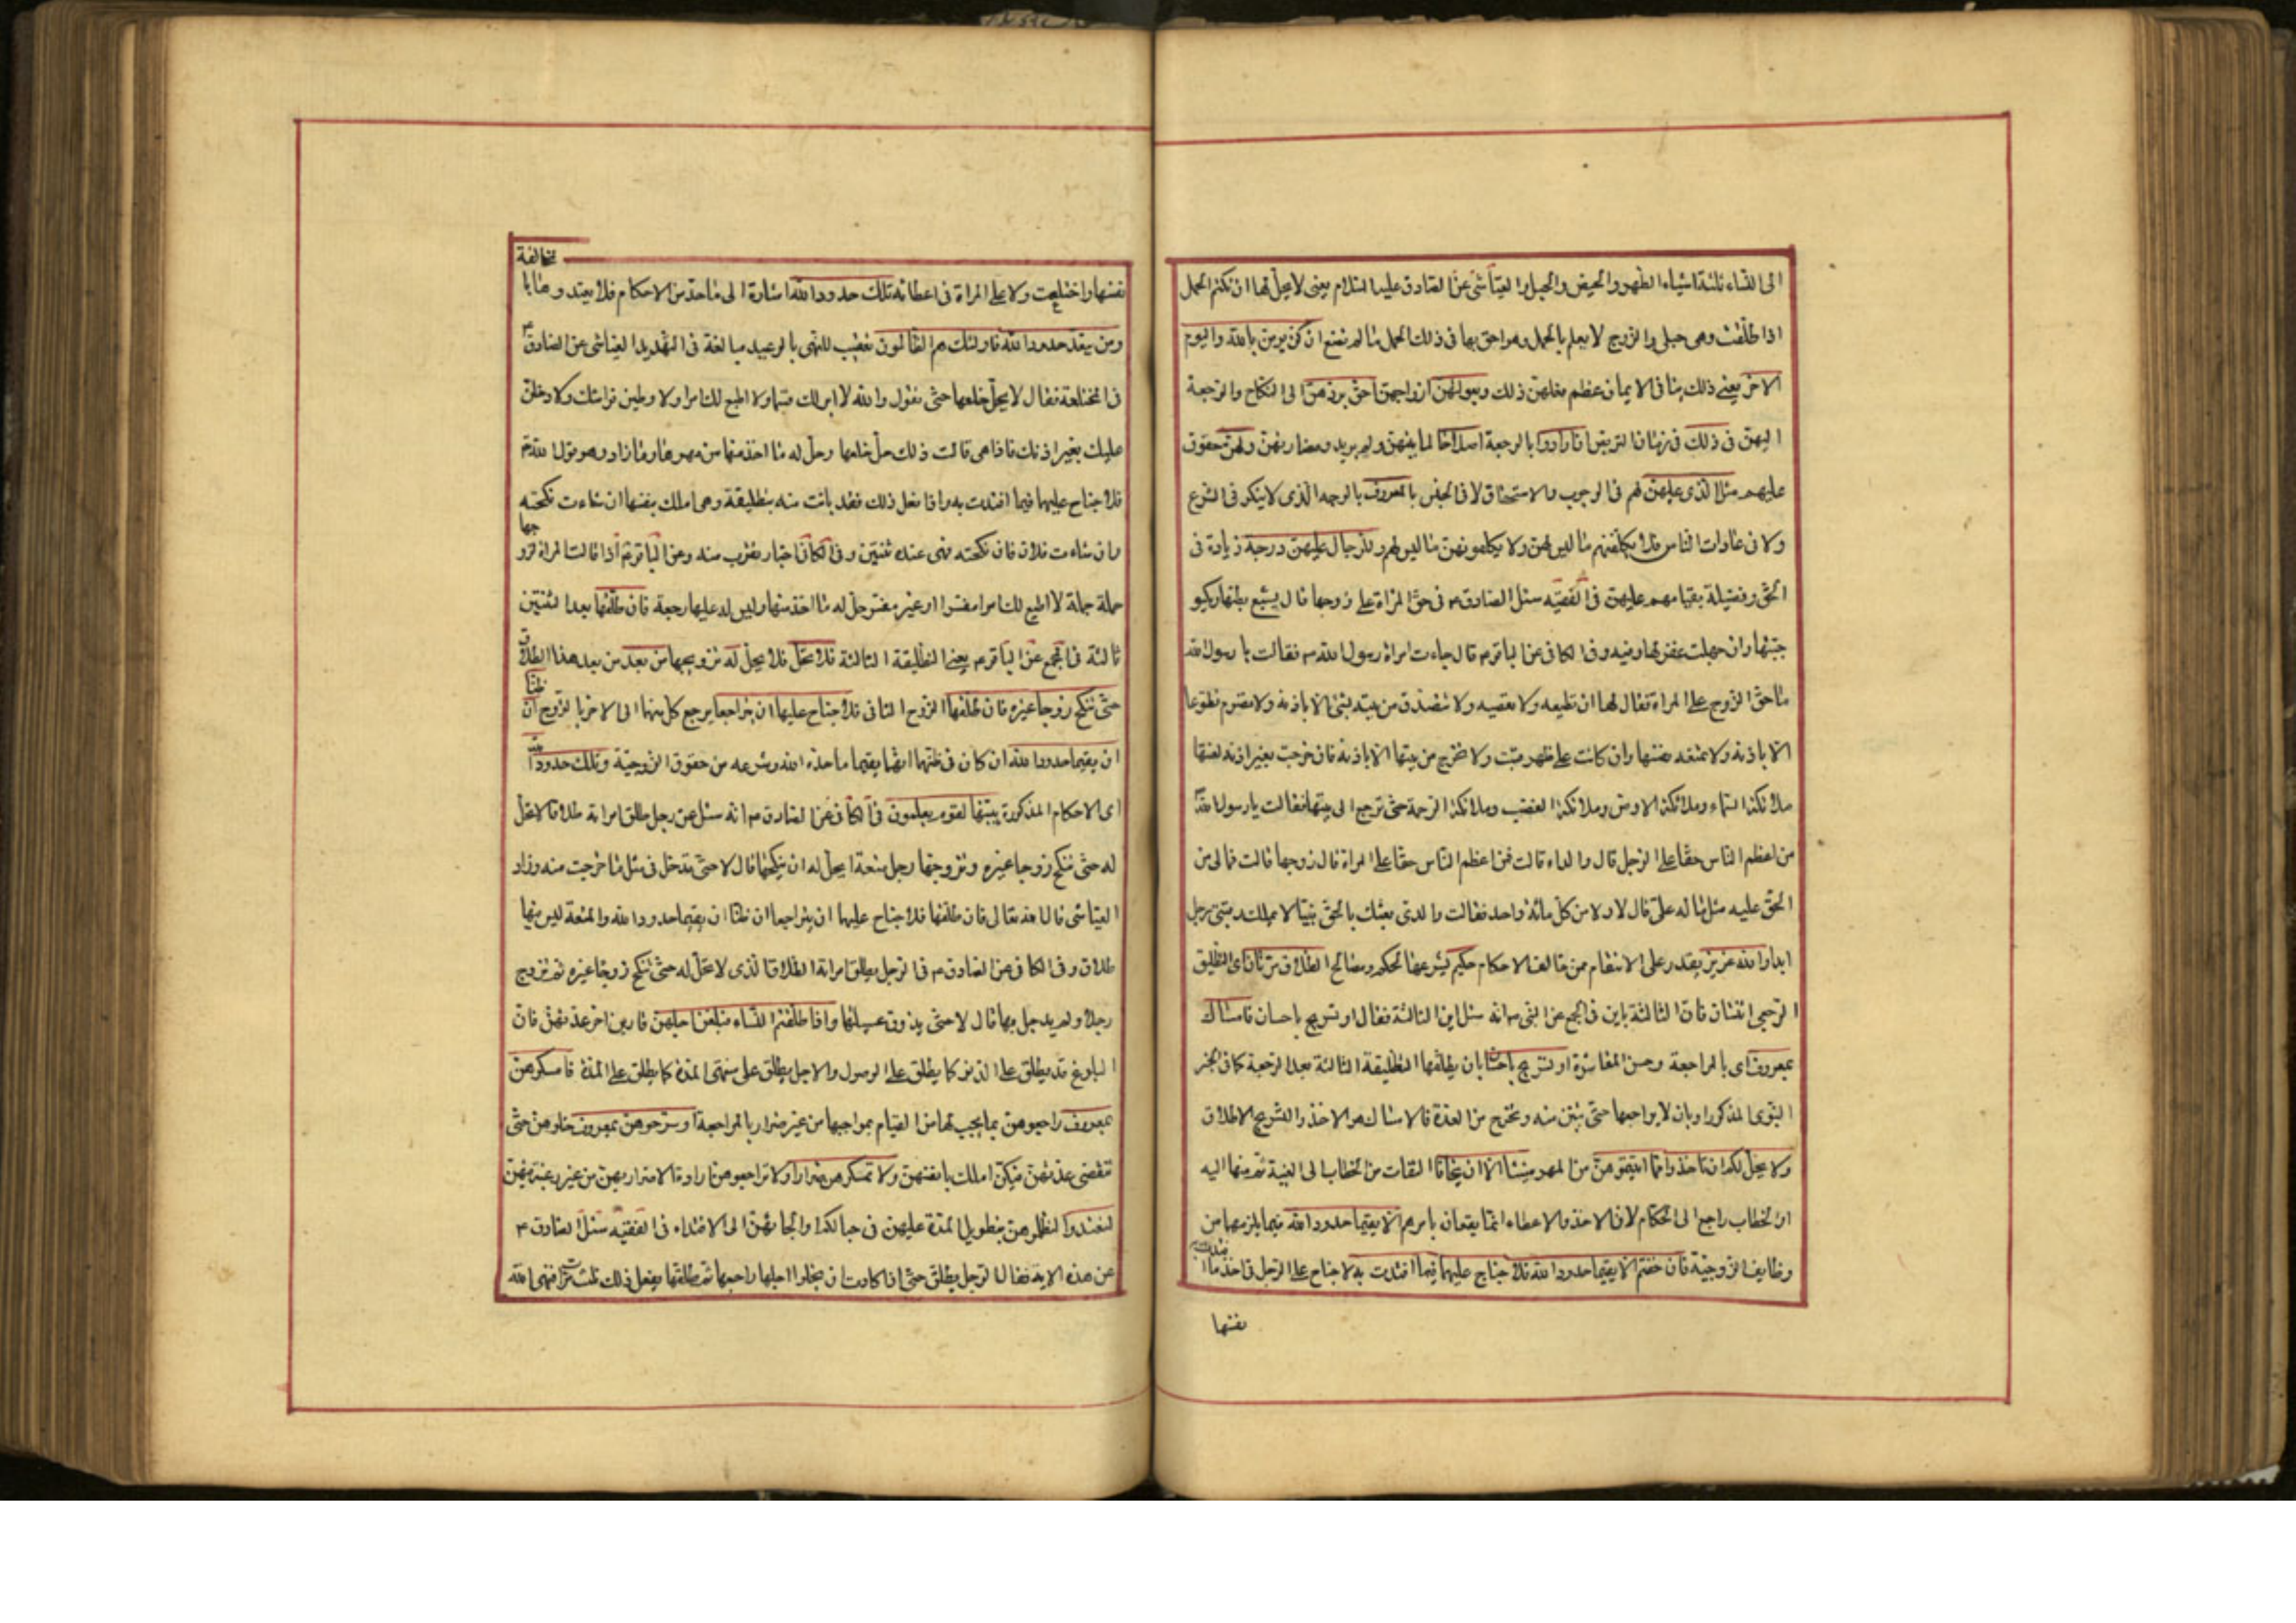 الى النساء ثلثة اشياء الطهر والحيض والحبل والعياشى عن الصادق عليه السلام يعنى لا يحل لها ان تكتم الحمل
اذا طلقت وهى حبلى والزوج لا يعلم بالحمل وهو احق بها فى ذلك الحمل ما لم تضع ان كن يومن بالله واليوم
الاخر يعنى ذلك ينافى الايمان عظم فعلهن ذلك وبعولتهن ازواجهن احق بردهن الى النكاح والرجعة
اليهن فى ذلك فى زمان التربص ان ارادوا بالرجعة اصلاحا لما بينهن ولم يريدوا مضارتهن ولهن حقوق
عليهم مثل الذى عليهن لهم فى الوجوب والاستحقاق لا فى الجنس بالمعروف بالوجه الذى لا ينكر فى الشرع
ولا فى عادات الناس فلا يكلفنهم ما ليس لهن ولا يكلفونهن ما ليس لهم وللرجال عليهن درجة زيادة فى
الحق وفضيلة بقيامهم عليهن فى الفقيه سئل الصادق م فى حق المراة على زوجها قال يشبع بطنها ويكسو
جثتها وان جهلت غفر لها وفيه وفى الكافى عن الباقر م قال جاءت امراة رسول الله م فقالت يا رسول الله
ما حق الزوج على المراة فقال لها ان تطيعه ولا تعصيه ولا تتصدق من بيته بشئ الا باذنه ولا تصوم تطوعا
الا باذنه ولا تمنعه نفسها وان كانت على ظهر قتب ولا تخرج من بيتها الا باذنه فان خرجت بغير اذنه لعنتها
ملائكة السماء وملائكة الارض وملائكة الغضب وملائكة الرحمة حتى ترجع الى بيتها فقالت يا رسول الله
من اعظم الناس حقا على الرجل قال والداه قالت فمن اعظم الناس حقا على المراة قال زوجها قالت فمالى من
الحق عليه مثل ما له على قال لا ولا من كل مائة واحد فقالت والذى بعثك بالحق نبيا لا يملك رقبتى رجل
ابدا والله عزيز يقدر على الانتقام ممن خالف الاحكام حكيم يشرعها لحكم ومصالح الطلاق مرتان اى التطليق
الرجعى اثنتان فان الثالثة باين فى المجمع عن النبى م انه سئل اين الثالثة فقال او تسريح باحسان فامساك
بمعروف اى بالمراجعة وحسن المعاشرة او تسريح باحسان بان يطلقها التطليقة الثالثة بعد الرجعة كما فى الخبر
النبوى المذكور او بان لا يراجعها حتى تبين منه وتخرج من العدة فالامساك هو الاخذ والتسريح الاطلاق
ولا يحل لكم ان تاخذوا مما اتيتموهن من المهر شيئا الا ان يخافا التفات من الخطاب الى الغيبة ثم منها اليه
او الخطاب راجع الى الحكام لان الاخذ والاعطاء انما يقعان بامرهم الا يقيما حدود الله فيما يلزمهما من
وظايف الزوجية فان خفتم الا يقيما حدود الله فلا جناح عليهما فيما افتدت به لا جناح على الرجل فى اخذ ما افتدت به
نفسها
مخالفة
نفسها واختلعت ولا على المراة فى اعطائه تلك حدود الله اشارة الى ما حد من الاحكام فلا تعتدوها با
ومن يتعد حدود الله فاولئك هم الظالمون تعقيب للنهى بالوعيد مبالغة فى التهديد العياشى عن الصادق م
فى المختلعة فقال لا يحل خلعها حتى تقول والله لا ابر لك قسما ولا اطيع لك امرا ولا وطئن فراشك ولا دخلن
عليك بغير اذنك فاذا هى قالت ذلك حل خلعها وحل له ما اخذ منها من مهرها وما زاد وهو قول الله تع
فلا جناح عليهما فيما افتدت به واذا فعل ذلك فقد بانت منه بتطليقة وهى املك بنفسها ان شاءت نكحته
وان شاءت فلا فان نكحته فهى عنده ثنتين وفى الكافى اخبار تقرب منه وعن الباقر م اذا قالت المراة لزوجها
جملة جملة لا اطيع لك امرا مفسرا او غير مفسر حل له ما اخذ منها وليس له عليها رجعة فان طلقها بعد الثنتين
ثالثة فى المجمع عن الباقر م يعنى التطليقة الثالثة فلا تحل فلا يحل له تزويجها من بعد من بعد هذا الطلاق
حتى تنكح زوجا غيره فان طلقها الزوج الثانى فلا جناح عليهما ان يتراجعا يرجع كل منهما الى الاخر بالزوج ان ظنا
ان يقيما حدود الله ان كان فى ظنهما انهما يقيما ما حده الله وشرعه من حقوق الزوجية وتلك حدود الله
اى الاحكام المذكورة يبينها لقوم يعلمون فى الكافى عن الصادق م انه سئل عن رجل طلق امراته طلاقا لا تحل
له حتى تنكح زوجا غيره وتزوجها رجل متعة ايحل له ان ينكحها قال لا حتى تدخل فى مثل ما خرجت منه وزاد
العياشى قال الله تعالى فان طلقها فلا جناح عليهما ان يتراجعا ان ظنا ان يقيما حدود الله والمتعة ليس فيها
طلاق وفى الكافى عن الصادق م فى الرجل يطلق امراته الطلاق الذى لا تحل له حتى تنكح زوجا غيره ثم تزوج
رجلا ولم يدخل بها قال لا حتى يذوق عسيلتها واذا طلقتم النساء فبلغن اجلهن قاربن اخر عدتهن فان
البلوغ قد يطلق على الدنو كما يطلق على الوصول والاجل يطلق على منتهى المدة كما يطلق على المدة فامسكوهن
بمعروف راجعوهن بما يجب لها من القيام بمواجبها من غير ضرار بالمراجعة او سرحوهن بمعروف خلوهن حتى
تنقضى عدتهن فيكن املك بانفسهن ولا تمسكوهن ضرارا ولا تراجعوهن ارادة الاضرار بهن من غير رغبة فيهن
لتعتدوا لتظلموهن بتطويل المدة عليهن فى حبالكم او الجائهن الى الافتداء فى الفقيه سئل الصادق م
عن هذه الاية فقال الرجل يطلق حتى اذا كادت ان يخلو اجلها راجعها ثم طلقها يفعل ذلك ثلث مرات فنهى الله